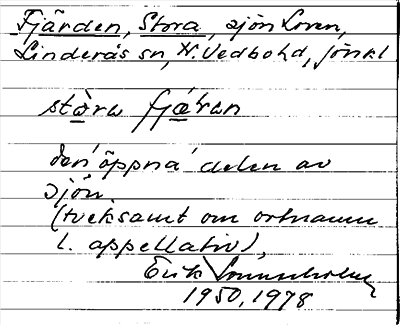 Fjärden, Stora, sjön Loren,
Linderås sn, N. Vedbohd, Jönkl
stòra fjä́ran
den öppna delen av
sjön.
(tveksamt om ortnamn
l. appellativ),
Erik
1950, 1978